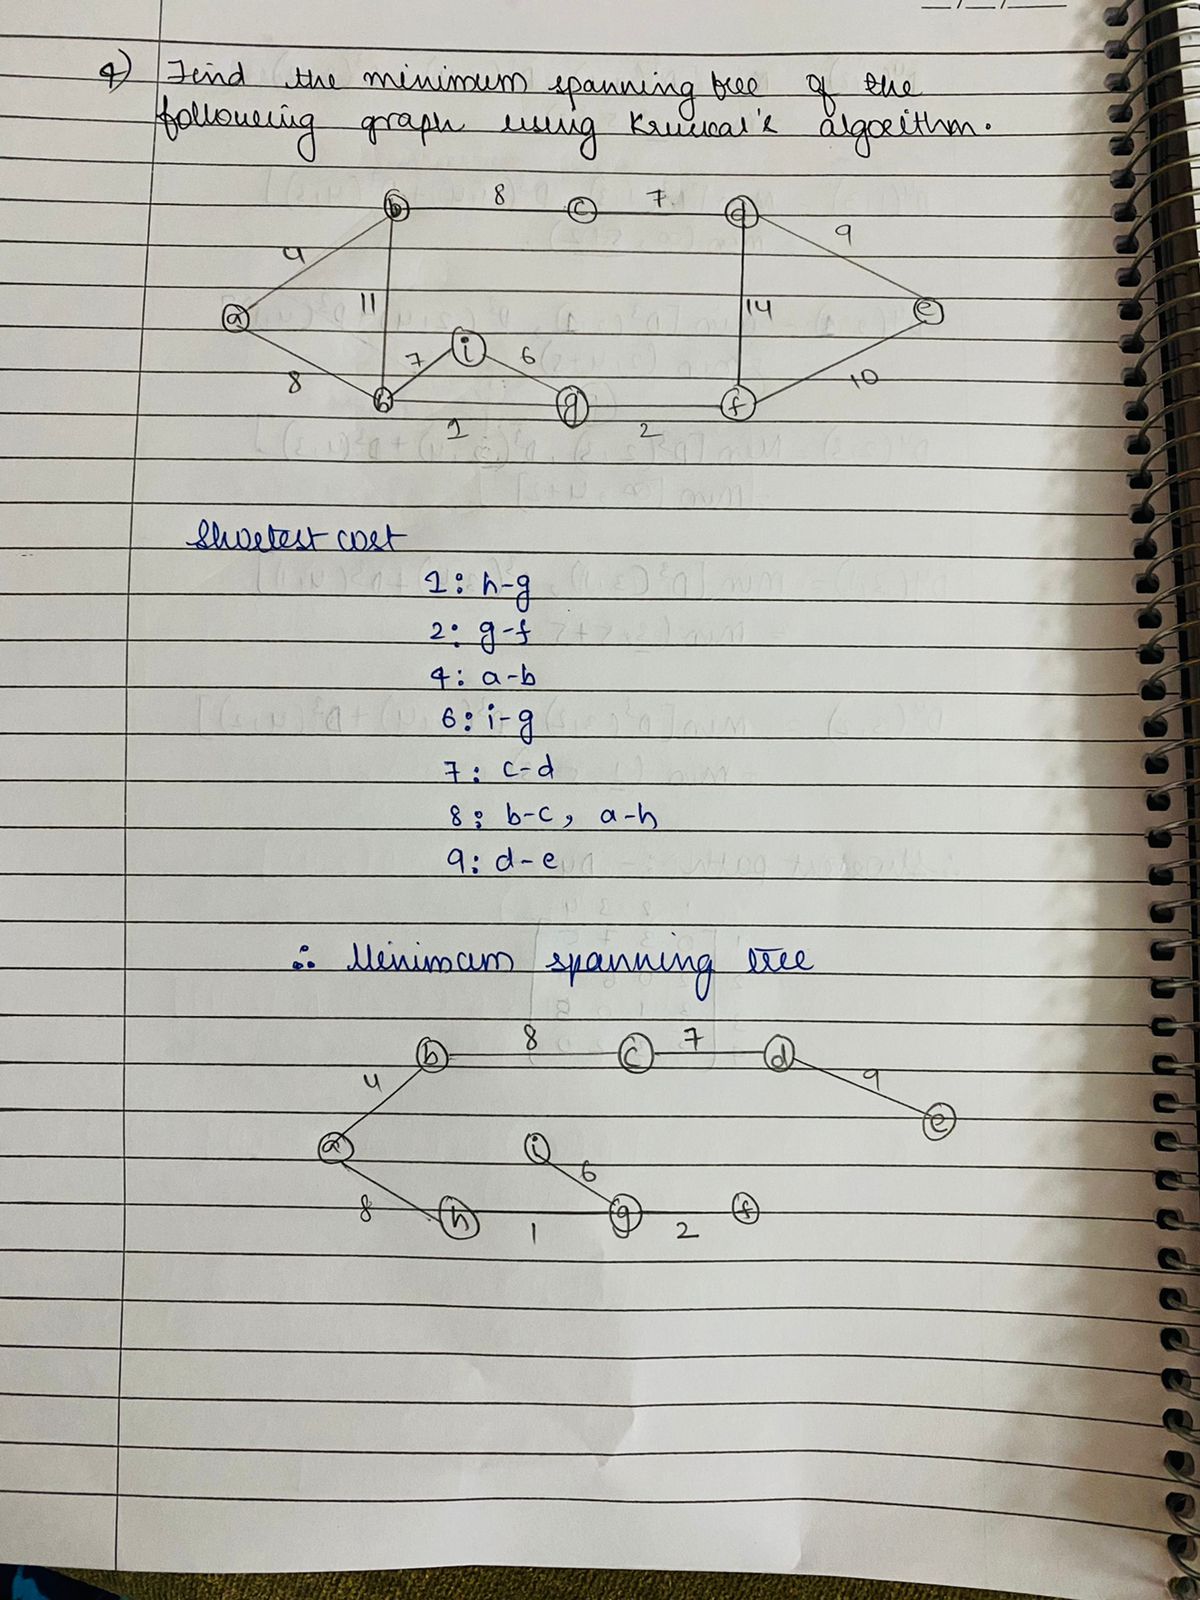 4) Find the minimum spanning tree of the
following graph using Kruscal's algorithm.
b 8 c 7 d
4 11 14 9
a e
7 i 6
8 10
h g f
1 2
Shortest cost
1: h-g
2: g-f
4: a-b
6: i-g
7: c-d
8: b-c, a-h
9: d-e
∴ Minimum spanning tree
b 8 c 7 d
4 9
a i e
6
8
h g f
1 2